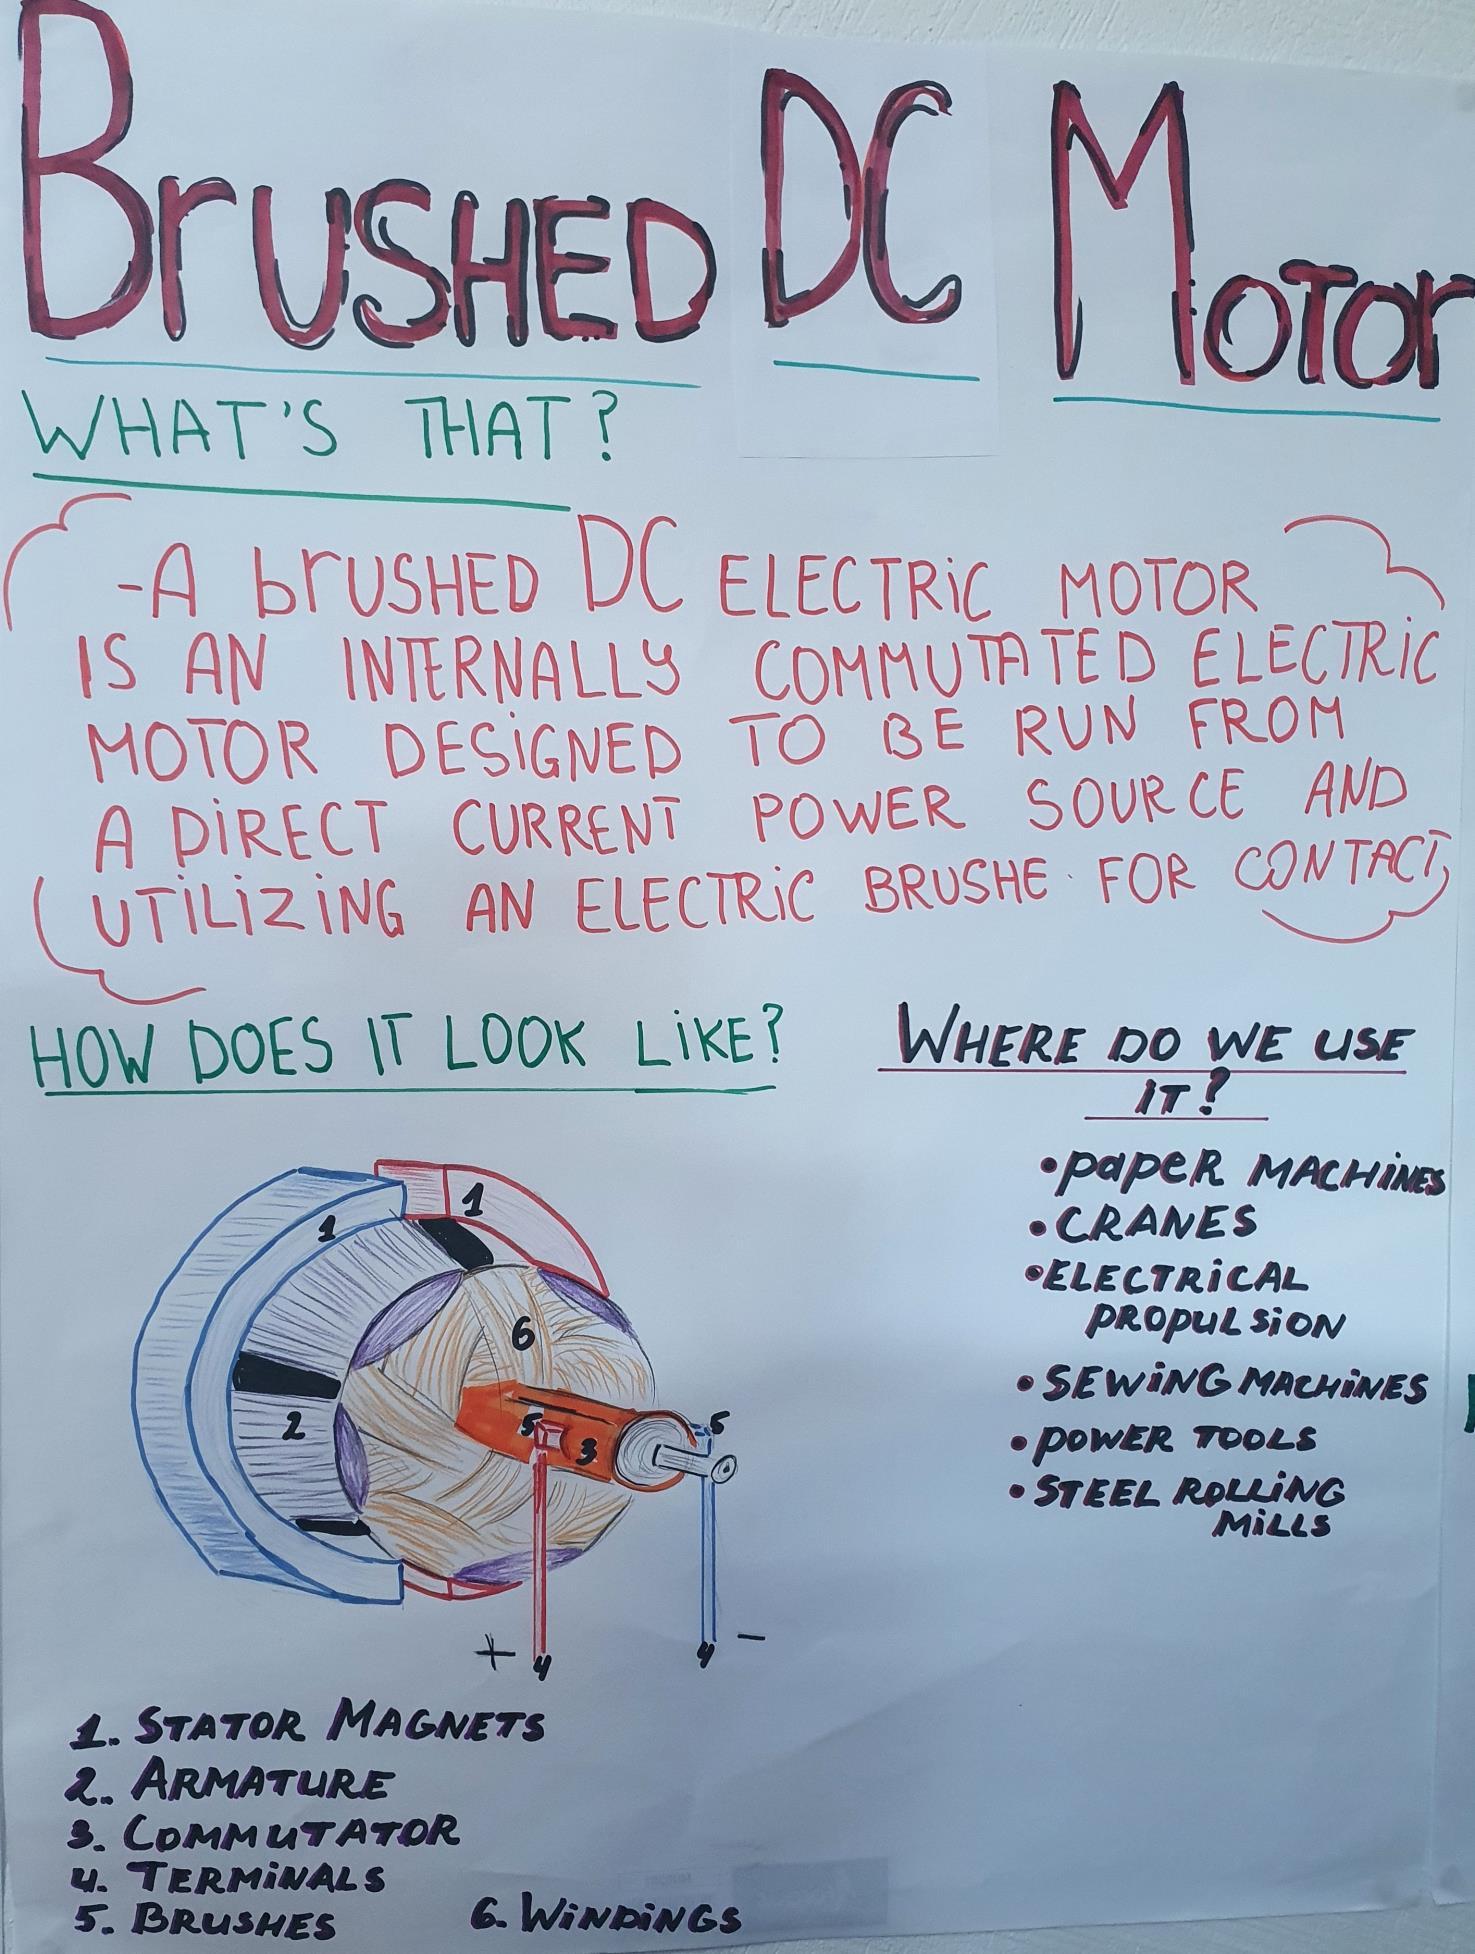 BrUSHED DC MOTOr
WHAT'S THAT?
-A brUSHED DC ELECTRiC MOTOR
IS AN INTERNALLY COMMUTATED ELECTRiC
MOTOR DESiGNED TO BE RUN FROM
A DiRECT CURRENT POWER SOURCE AND
UTiLiZiNG AN ELECTRiC BRUSHE FOR CONTACT,
HOW DOES IT LOOK LiKE?
WHERE DO WE USE
iT?
•papeR MACHiNES
•CRANES
•ELECTRiCAL
PROPULSiON
•SEWiNG MACHiNES
•POWER TOOLS
•STEEL ROLLiNG
MiLLS
1
1
6
2
5
3
5
+
4
4
-
1. STATOR MAGNETS
2. ARMATURE
3. COMMUTATOR
4. TERMiNALS
5. BRUSHES
6. WiNDiNGS